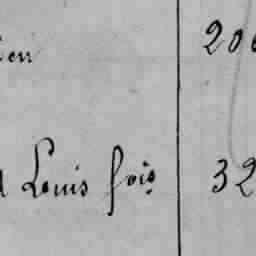 ien 200
d Louis fois 32